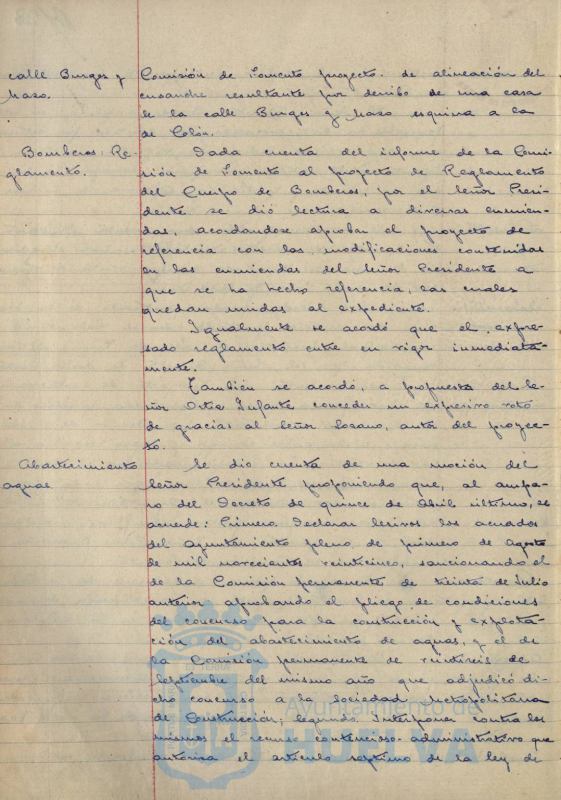 calle Burgos y
Mazo.
Comisión de Fomento proyecto de alineación del
ensanche resultante por derribo de una casa
de la calle Burgos y Mazo esquina a la
de Colón.
Bomberos: Re-
glamento.
Dada cuenta del informe de la Comi-
sión de Fomento al proyecto de Reglamento
del Cuerpo de Bomberos, por el Señor Presi-
dente se dió lectura a diversas enmien-
das, acordandose aprobar el proyecto de
referencia con las modificaciones contenidas
en las enmiendas del Señor Presidente a
que se ha hecho referencia, las cuales
quedan unidas al expediente.
Igualmente se acordó que el expre-
sado reglamento entre en vigor inmediata-
mente.
También se acordó, a propuesta del Se-
ñor Ortiz Infante conceder un expresivo voto
de gracias al Señor Lozano, autor del proyec-
to.
Abastecimiento
aguas
Se dio cuenta de una moción del
Señor Presidente proponiendo que, al ampa-
ro del Decreto de quince de Abril último, se
acuerde: Primero. Declarar lesivos los acuerdos
del Ayuntamiento pleno de primero de Agosto
de mil novecientos veinticinco, sancionando el
de la Comisión permanente de treinta de Julio
anterior aprobando el pliego de condiciones
del concurso para la construcción y explota-
ción del abastecimiento de aguas, y el de
la Comisión permanente de veintiseis de
Septiembre del mismo año que adjudicó di-
cho concurso a la Sociedad Metropolitana
de Construcción; segundo. Interponer contra los
mismos el recurso contencioso-administrativo que
autoriza el artículo septimo de la ley de
Ayuntamiento de
HUELVA